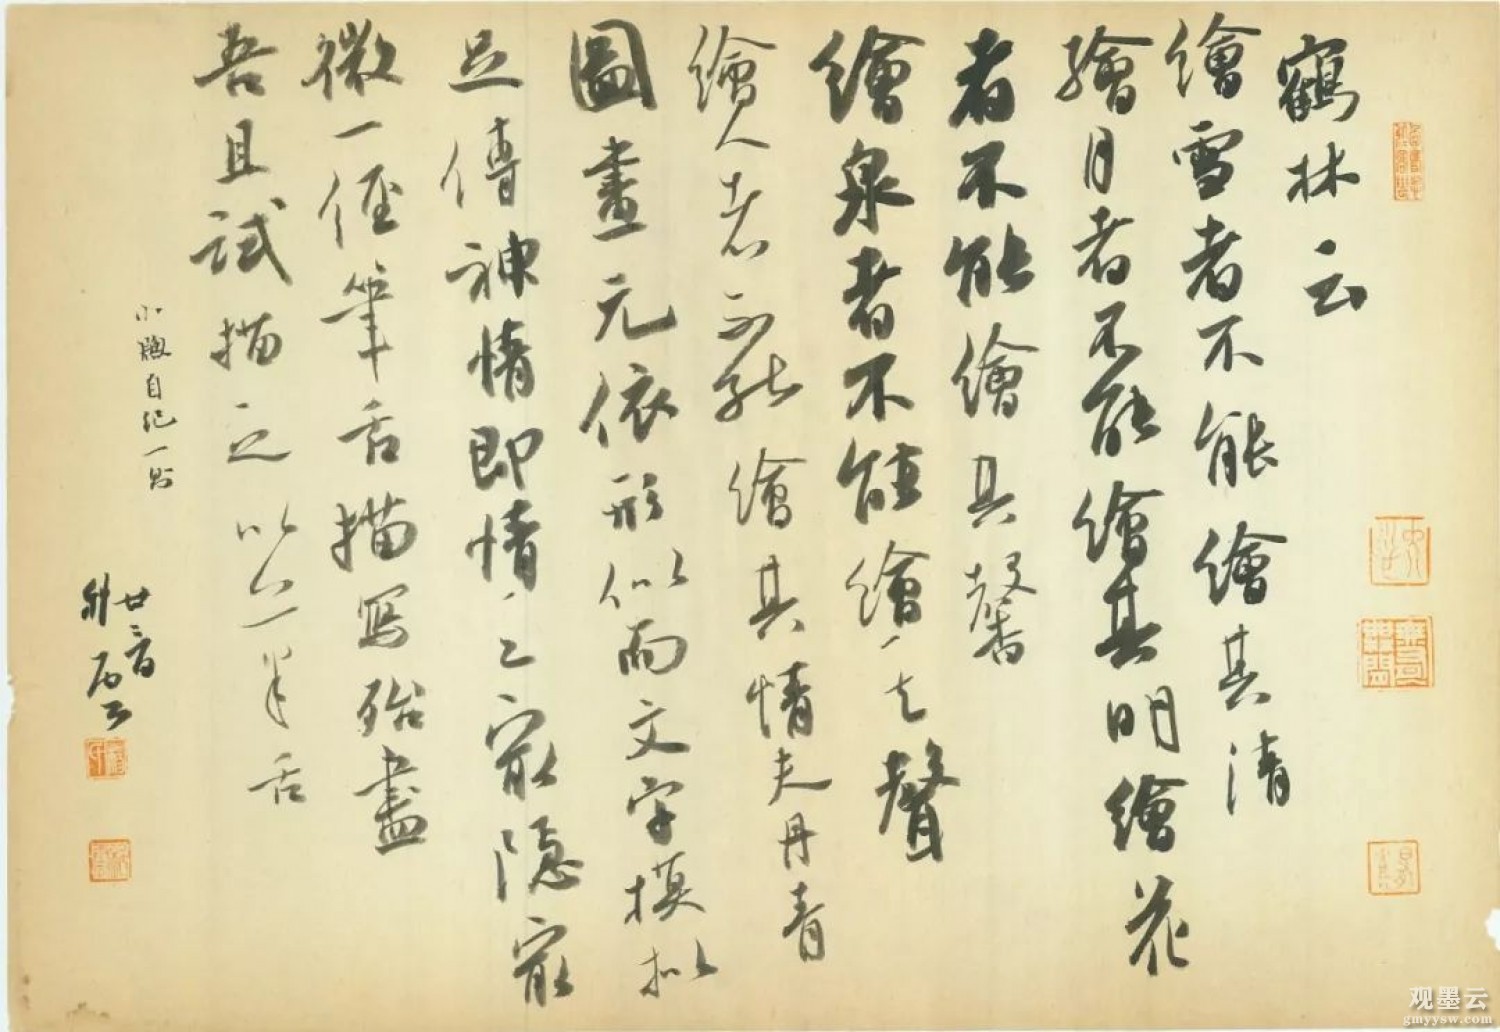 鶴林云
繪雪者不能繪其清
繪月者不能繪其明繪花
者不能繪其馨
繪泉者不能繪之聲
繪人者不能繪其情夫丹青
圖畫元依形似而文字模拟
足傳神情即情之最隱最
微一經筆舌描寫殆盡
吾且試描之以筆舌
自紀一則
廿二
观墨云
gmyysw.com